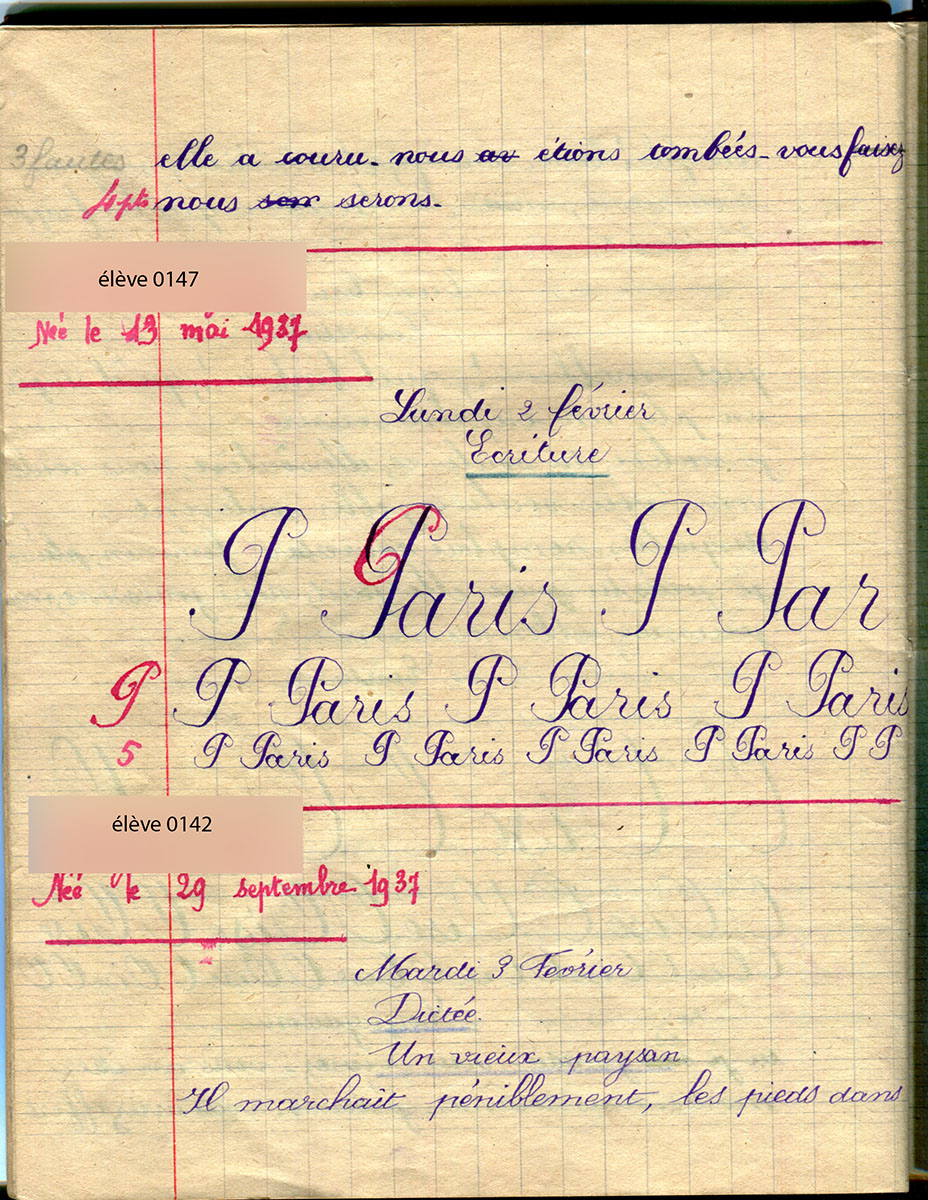 3 fautes elle a couru. nous av étions tombées. vous faisez
4 pts nous som serons.
élève 0147
Née le 13 mai 1937
Lundi 2 février
Ecriture
P Paris P Par
P P Paris P Paris P Paris
5 P Paris P Paris P Paris P Paris P P
élève 0142
Née le 29 septembre 1937
Mardi 3 Février
Dictée.
Un vieux paysan
Il marchait péniblement, les pieds dans